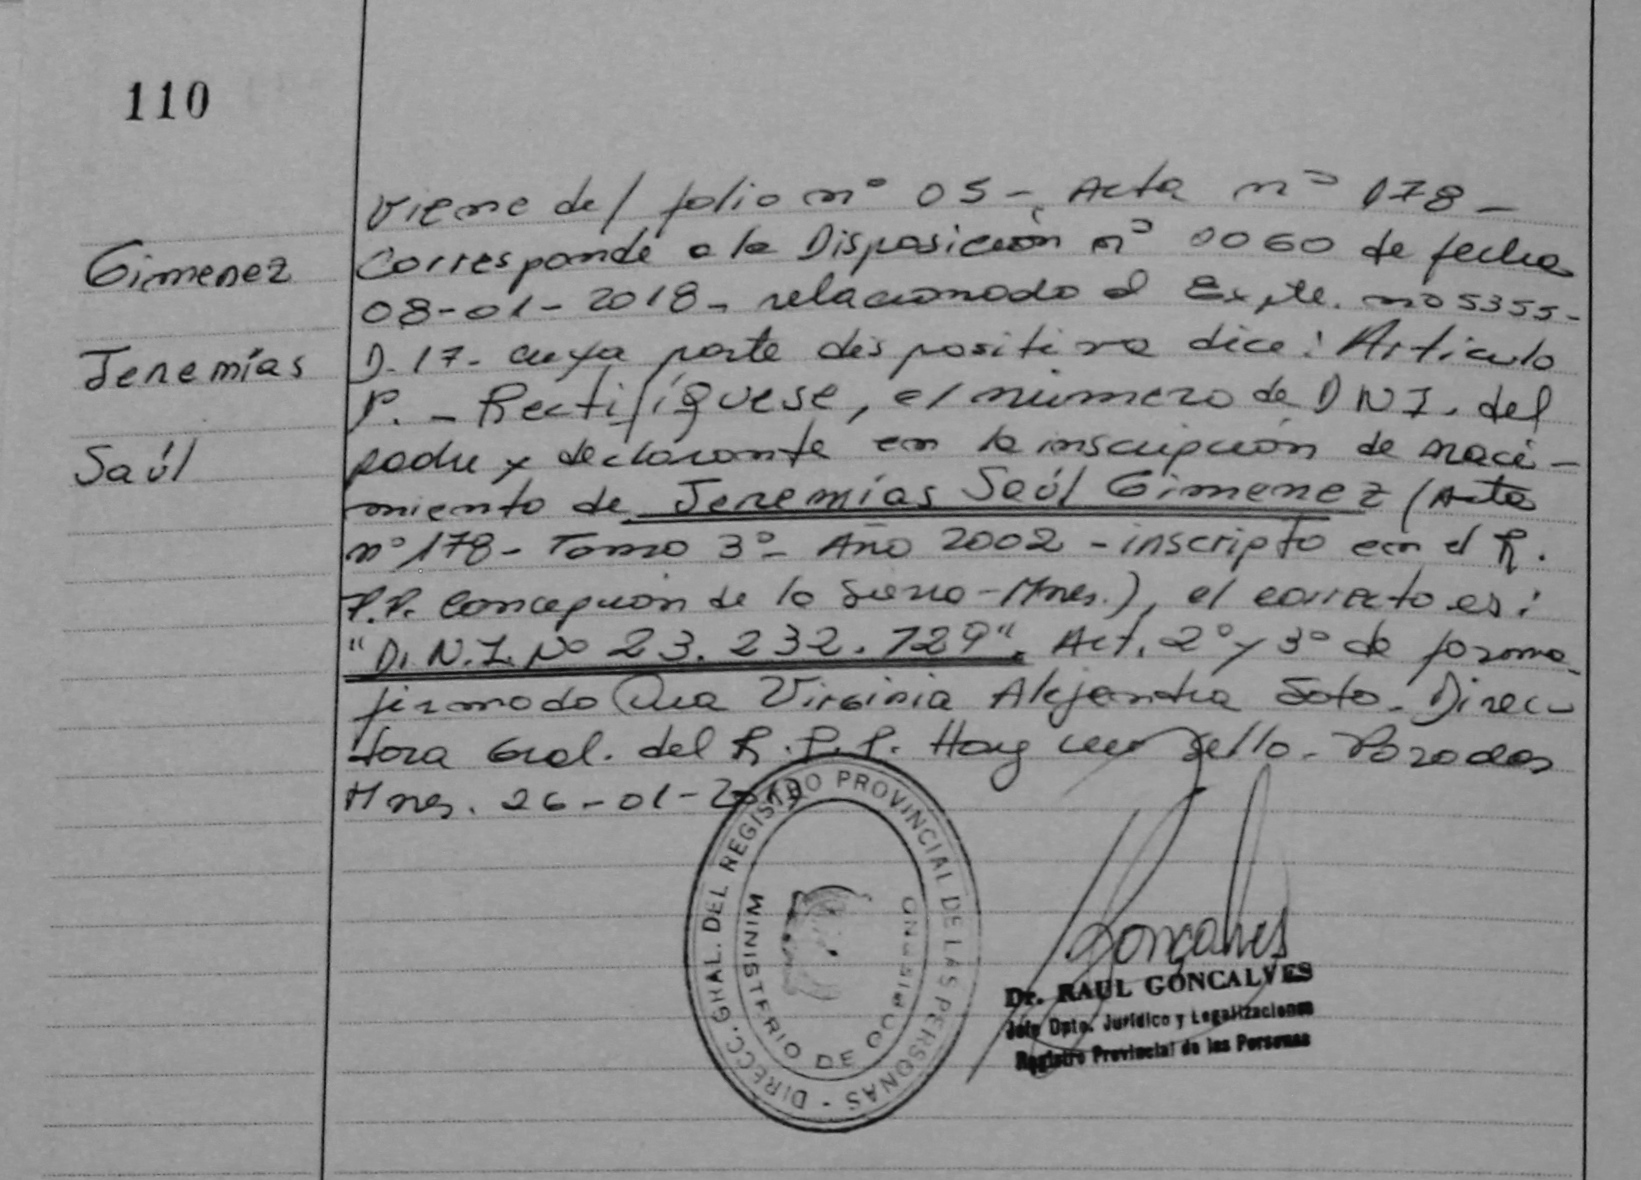 110
Gimenez
Jeremías
Saúl
Viene del folio nº 05 - Acta nº 178 -
Corresponde a la Disposición nº 0060 de fecha
08-01-2018 - relacionado al Expte. nº 5355-
D. 17 - cuya parte dispositiva dice: Articulo
1º. - Rectifíquese, el número de D N I. del
padre y declarante en la inscripción de naci-
miento de Jeremías Saúl Gimenez (Acta
nº 178 - Tomo 3º - Año 2002 - inscripto en el R.
P.P. Concepción de la Sierra - Mnes.), el correcto es:
"D.N.I. Nº 23.232.729". Art. 2º y 3º de forma
firmado Dra Virginia Alejandra Soto. Direc-
tora Gral. del R.P.P. Hay un sello. Posadas
Mnes. 26-01-
DIRECC. GRAL. DEL REGISTRO PROVINCIAL DE LAS PERSONAS -
MINISTERIO DE GOBIERNO
Goncalves
Dr. RAUL GONCALVES
Jefe Dpto. Jurídico y Legalizaciones
Registro Provincial de las Personas